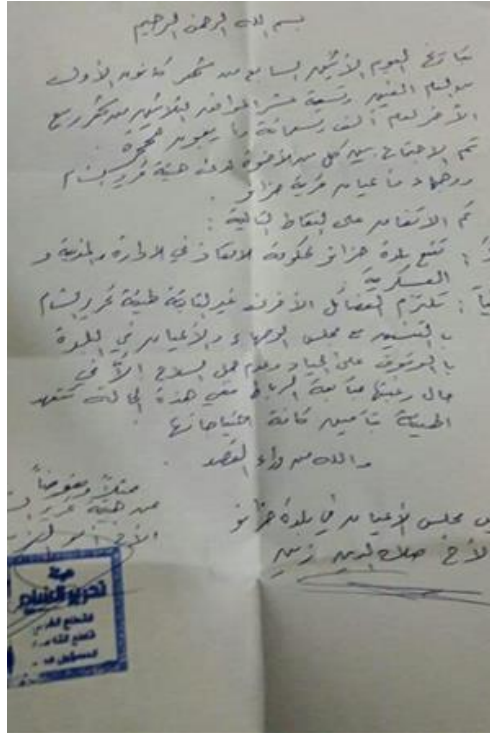 بسم الله الرحمن الرحيم
بتاريخ اليوم الاثنين السابع من شهر كانون الأول
لعام ألفين وتسعة عشر الموافق الثلاثين من شهر ربيع
الآخر لعام ألف وأربعمائة و
تم الاجتماع بين كل من الأخوة في هيئة تحرير الشام
ووجهاء وأعيان قرية حزانو
تم الاتفاق على النقاط التالية :
: تتبع بلدة حزانو لحكومة الإنقاذ في الإدارة المدنية و
العسكرية
: تلتزم الفصائل الأخرى غير التابعة لهيئة تحرير الشام
بالتنسيق مع مجلس الوجهاء والأعيان في البلدة
بالوقوف على الحياد وعدم حمل السلاح إلا في
حال رغبتها متابعة الرباط ففي هذه الحالة تتعهد
الهيئة بتأمين كافة احتياجاتها
والله من وراء القصد
مجلس الأعيان في بلدة حزانو
الأخ صلاح الدين
ممثلاً ومفوضاً
من هيئة تحرير
الأخ أبو
هيئة
تحرير الشام